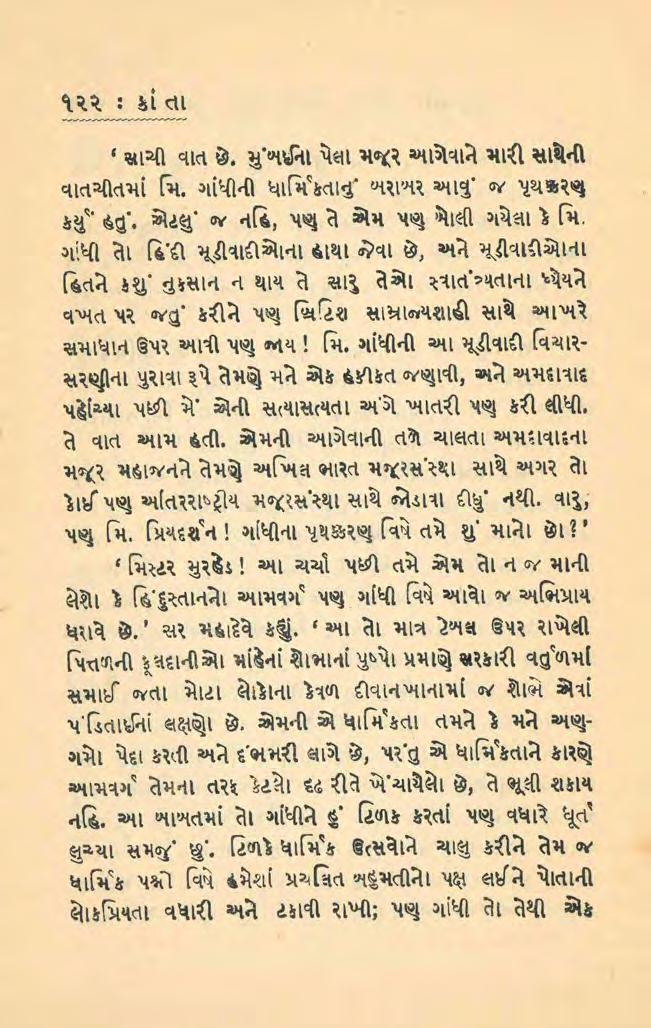 ૧૨૨ : કાંતા
‘ સાચી વાત છે. મુંબઈના પેલા મજૂર આગેવાને મારી સાથેની
વાતચીતમાં મિ. ગાંધીની ધાર્મિકતાનું બરાબર આવું જ પૃથક્કરણ
કર્યું હતું. એટલું જ નહિ, પણ તે એમ પણ બોલી ગયેલા કે મિ.
ગાંધી તો હિંદી મૂડીવાદીઓના હાથા જેવા છે, અને મૂડીવાદીઓના
હિતને કશું નુકસાન ન થાય તે સારુ તેઓ સ્વાતંત્ર્યતાના ધ્યેયને
વખત પર જતું કરીને પણ બ્રિટિશ સામ્રાજ્યશાહી સાથે આખરે
સમાધાન ઉપર આવી પણ જાય ! મિ. ગાંધીની આ મૂડીવાદી વિચાર-
સરણીના પુરાવા રૂપે તેમણે મને એક હકીકત જણાવી, અને અમદાવાદ
પહોંચ્યા પછી મેં એની સત્યાસત્યતા અંગે ખાતરી પણ કરી લીધી.
તે વાત આમ હતી. એમની આગેવાની તળે ચાલતા અમદાવાદના
મજૂર મહાજનને તેમણે અખિલ ભારત મજૂરસંસ્થા સાથે અગર તો
કોઈ પણ આંતરરાષ્ટ્રીય મજૂરસંસ્થા સાથે જોડાવા દીધું નથી. વારુ,
પણ મિ. પ્રિયદર્શન ! ગાંધીના પૃથક્કરણ વિષે તમે શું માનો છો ? ’
‘ મિસ્ટર મુરહેડ ! આ ચર્ચા પછી તમે એમ તો ન જ માની
લેશો કે હિંદુસ્તાનનો આમવર્ગ પણ ગાંધી વિષે આવો જ અભિપ્રાય
ધરાવે છે. ’ સર મહાદેવે કહ્યું. ‘ આ તો માત્ર ટેબલ ઉપર રાખેલી
પિત્તળની ફૂલદાનીઓ માંહેનાં શોભાનાં પુષ્પો પ્રમાણે સરકારી વર્તુળમાં
સમાઈ જતા મોટા લોકોના કેવળ દીવાનખાનામાં જ શોભે એવાં
પંડિતાઈનાં લક્ષણો છે. એમની એ ધાર્મિકતા તમને કે મને અણ-
ગમો પેદા કરતી અને દંભભરી લાગે છે, પરંતુ એ ધાર્મિકતાને કારણે
આમવર્ગ તેમના તરફ કેટલો દૃઢ રીતે ખેંચાયેલો છે, તે ભૂલી શકાય
નહિ. આ બાબતમાં તો ગાંધીને હું ટિળક કરતાં પણ વધારે ધૂર્ત
લુચ્ચા સમજું છું. ટિળકે ધાર્મિક ઉત્સવોને ચાલુ કરીને તેમ જ
ધાર્મિક પશ્નો વિષે હમેશાં પ્રચલિત બહુમતીનો પક્ષ લઈને પોતાની
લોકપ્રિયતા વધારી અને ટકાવી રાખી; પણ ગાંધી તો તેથી એક